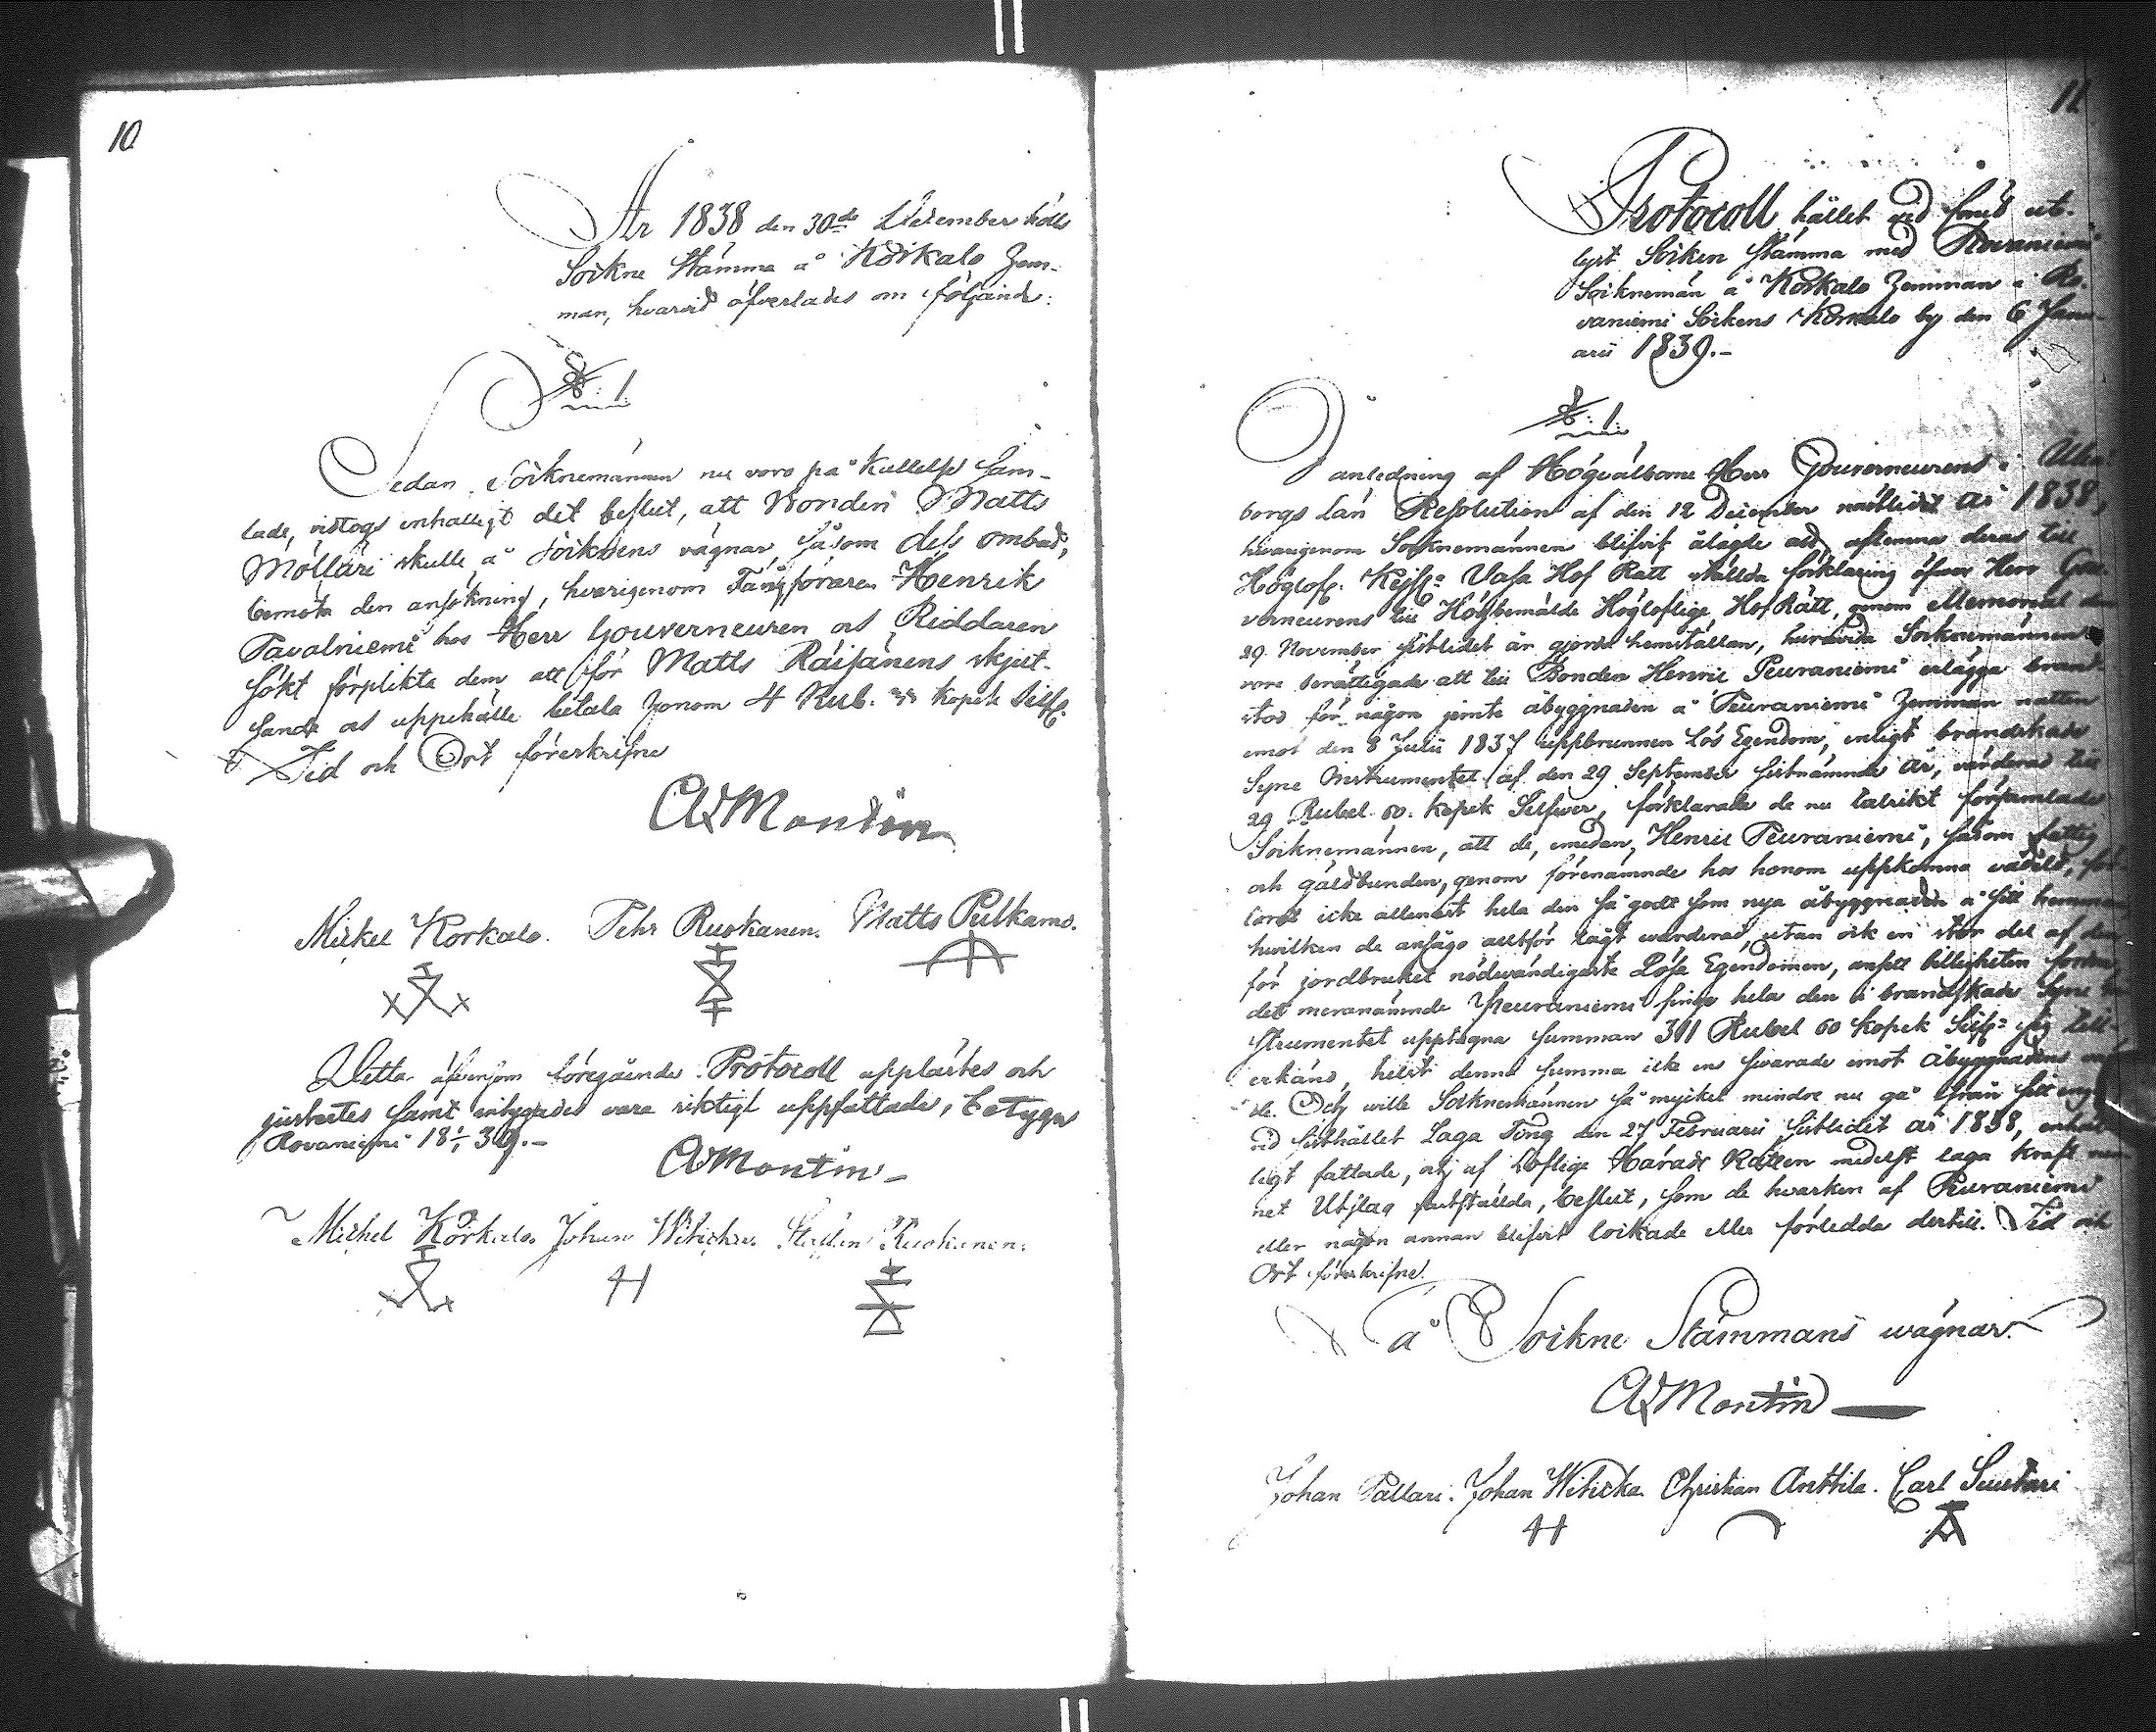 10
År 1838 den 30de December hölls
Sockne Stämma å Korkalo Hem-
man, hvarvid öfverlades om följande:
§ 1
Sedan Socknemännen nu voro på kallelse sam-
lade, vidtogs enhälligt det beslut, att Bonden Matts
Möllari skulle å Socknens vägnar såsom dess ombud,
bemöta den ansökning, hvarigenom Fångföraren Henrik
Tavalniemi hos Herr Gouverneuren och Riddaren
sökt förplikta dem att för Matts Räisänens skjut-
sande och uppehälle betala honom 4 Rub. kopek Silfr.
Tid och Ort föreskrifne
AMontin
Mickel Korkalo. Pehr Ruokanen. Matts Pulkamo.
Detta äfvensom föregående Protocoll upplästes och
justertes samt vara riktigt uppfattade, betygas
Rovaniemi 18 39.-
AMontin
Michel Korkalo. Johan Witicka. Staffan Ruokanen.
11
Protocoll hållet vid ut-
lyst Socken Stämma med Rovaniemi
Socknemän å Korkalo Hemman i Ro-
vaniemi Sockens Korkalo by den 6 Janu-
arii 1839.-
§ 1
I anledning af Högvälborne Herr Gouverneurens i Uleå
borgs Län Resolution af den 12 December nästlidit år 1838,
hvarigenom Socknemännen blifvit ålagde att aflemna deras till
Höglofl. Kejserl. Vasa Hof Rätt ställda förklaring öfver Herr Gou-
verneurens till Högbemälde Högloflige Hof Rätt, genom Memorial den
29 November sistlidet år gjorda hemställan, huruvida Socknemännen
vore berättigade att till Bonden Henric Peuraniemi erlägga brand-
stod för någon jemte åbyggnaden å Peuraniemi Hemman natten
emot den 8 Julii 1837 uppbrunnen lös Egendom, enligt brandskade
Syne Instrumentet af den 29 September sistnämnde år, värderad till
29 Rubel 60 kopek Silfver, förklarade de nu talrikt församlade
Socknemännen, att de, emedan Henric Peuraniemi, såsom fattig
och gäldbunden, genom förenämnde hos honom uppkomna vådeld, för-
lorat icke allenast hela den så godt som nya åbyggnaden å sitt hemman
hvilken de ansågo alltför lågt värderad, utan ock en stor del af den
för jordbruket nödvändigaste lösa Egendomen, ansett billigheten fordra
det meranämnde Peuraniemi finge hela den i brandskade Syne In-
strumentet upptagna summan 311 Rubel 60 kopek Silfr sig till-
erkänd, helst denna summa icke ens svarade emot åbyggnadens
de. Och wille Socknemännen så mycket mindre nu gå ifrån sitt
vid sisthållet Laga Ting den 27 Februarii sistlidit år 1838, enhäl
ligt fattade, och af Loflige Härads Rätten medelst laga kraft vun
net Utslag fastställda, beslut, som de hvarken af Peuraniemi
eller någon annan blifvit lockade eller förledde dertill. Tid och
Ort föreskrifne.
å Sockne Stämmans wägnar.
AMontin
Johan Pallari. Johan Witicka. Christian Anttila. Carl Suutari